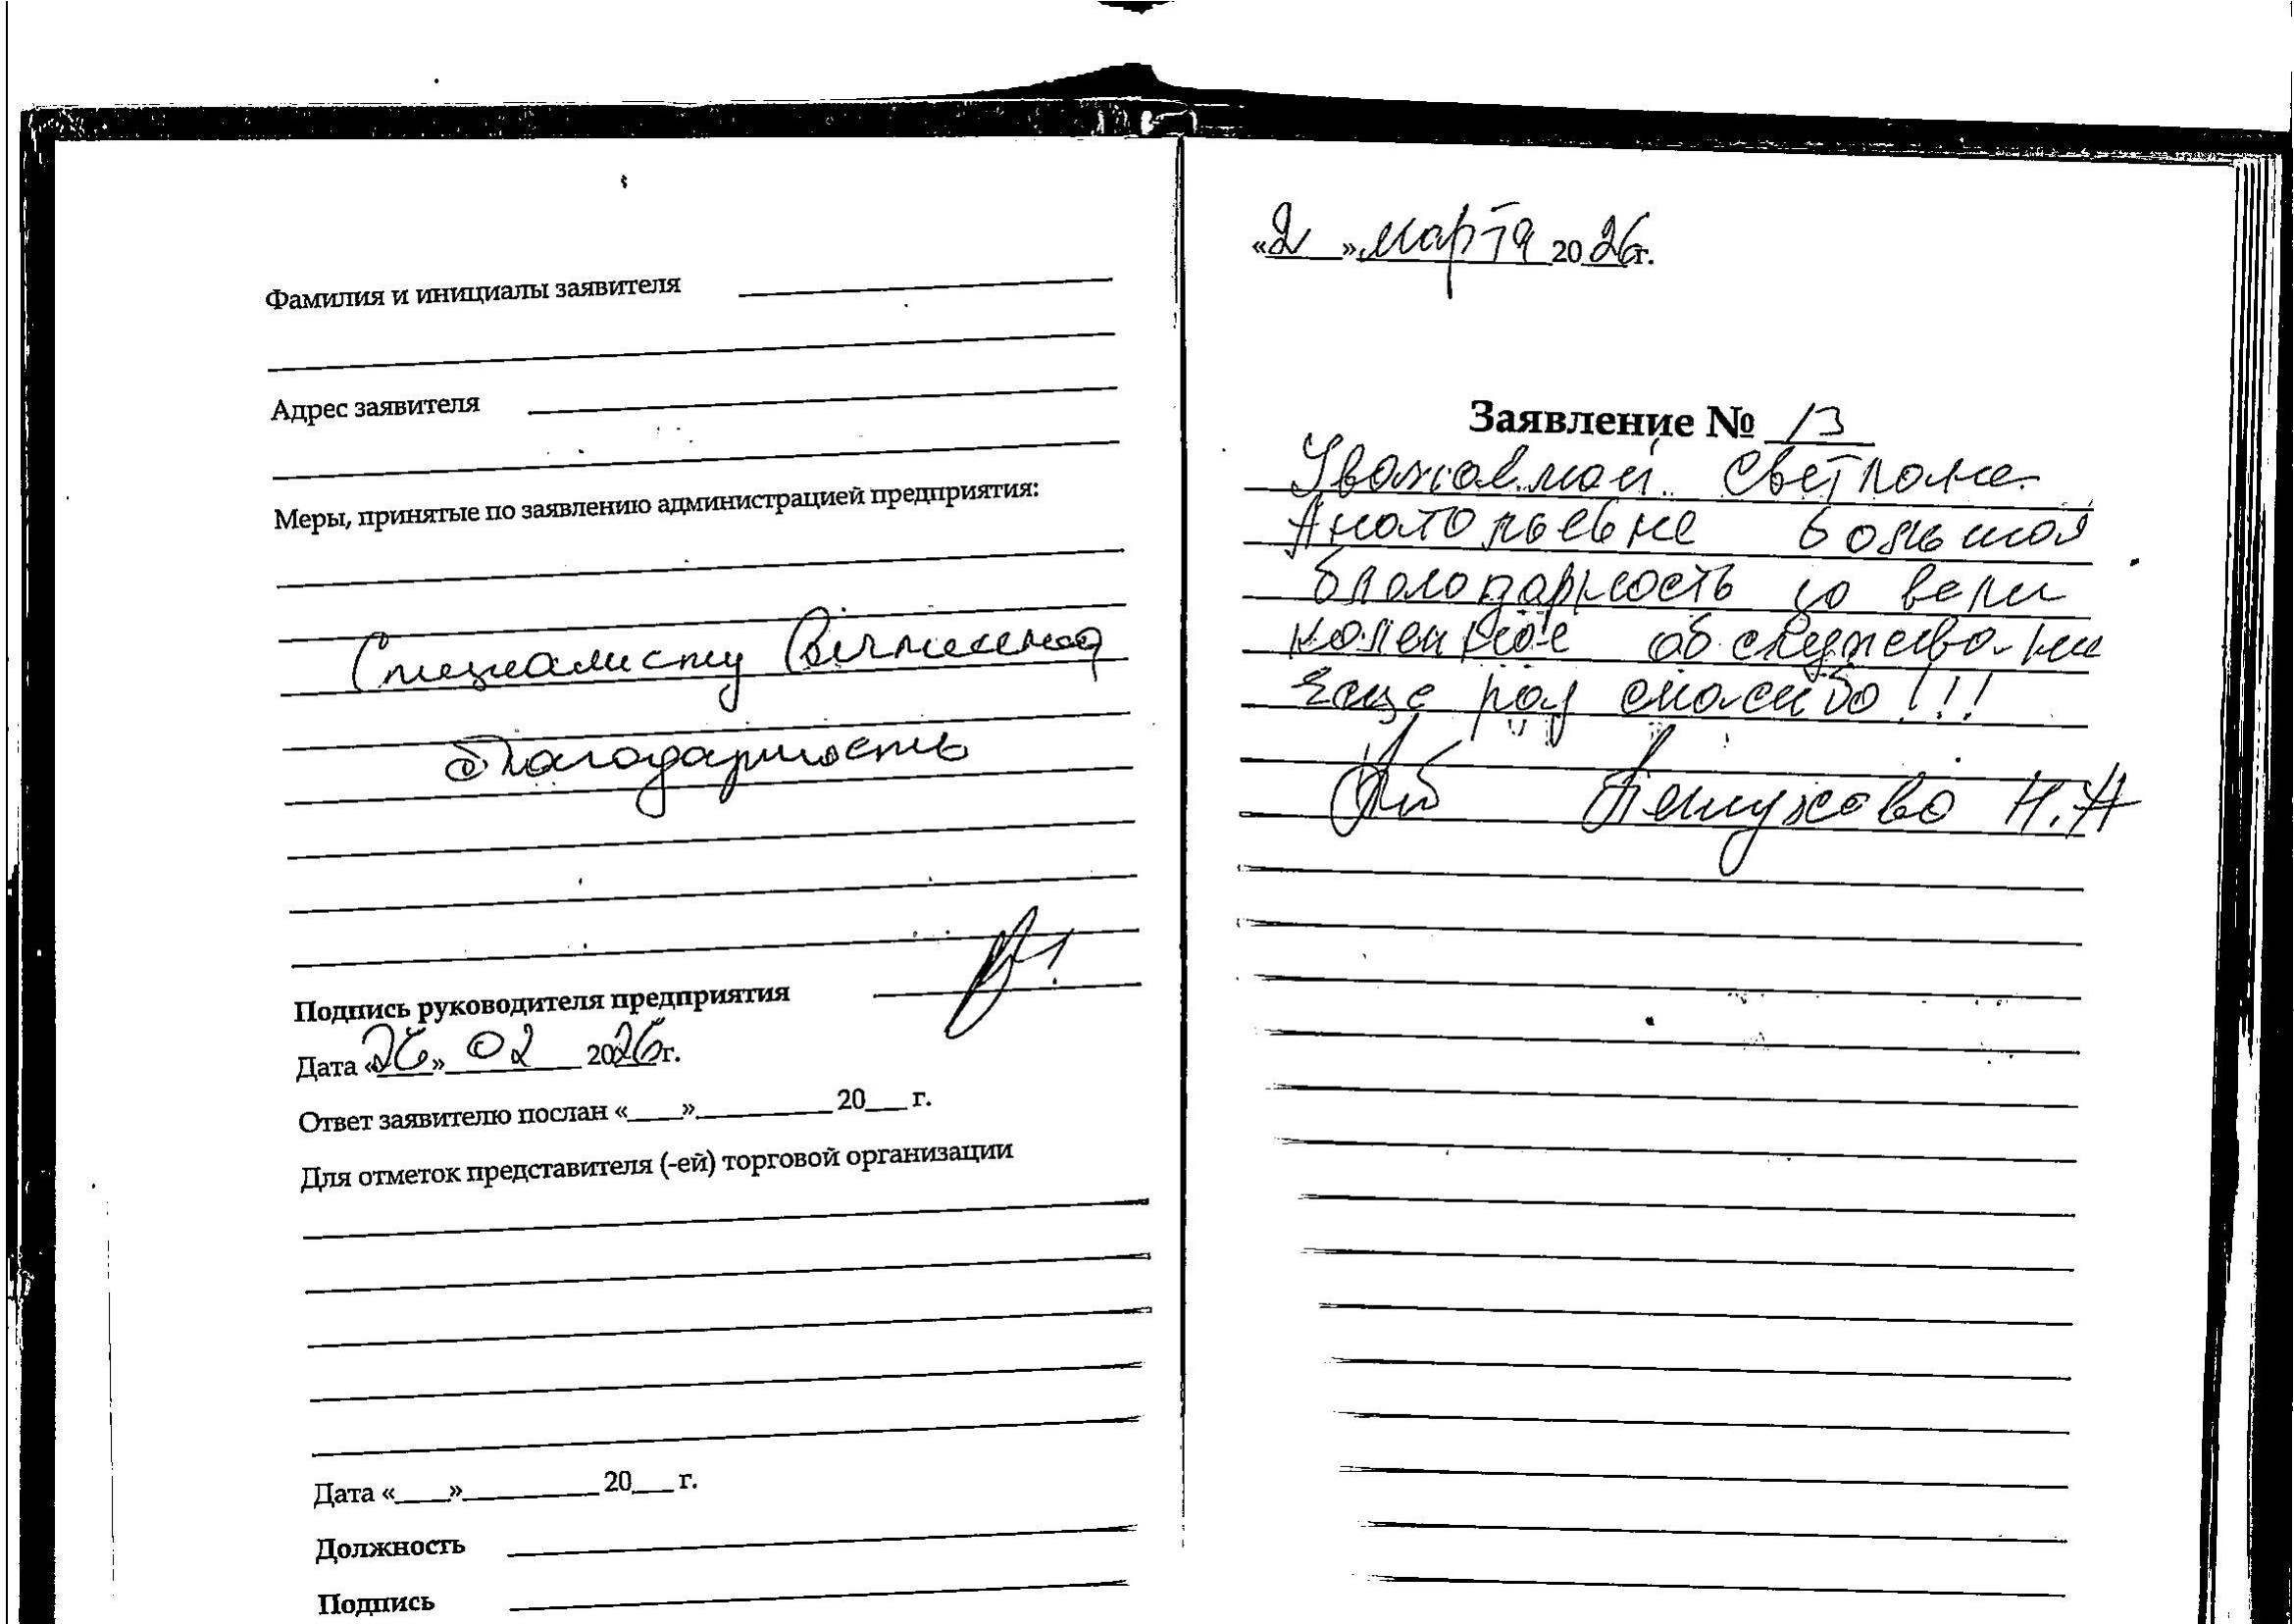 Фамилия и инициалы заявителя
Адрес заявителя
Меры, принятые по заявлению администрацией предприятия:
Специалисту
благодарность
Подпись руководителя предприятия
Дата «26» 02 2026г.
Ответ заявителю послан «___»_________ 20___ г.
Для отметок представителя (-ей) торговой организации
Дата «___»_________ 20___ г.
Должность
Подпись
«2» марта 2026г.
Заявление № 13
Уважаемой Светлане
Анатольевне большая
благодарность за вели
колепное обслужива-ни
Еще раз спасибо!!!
Н.А